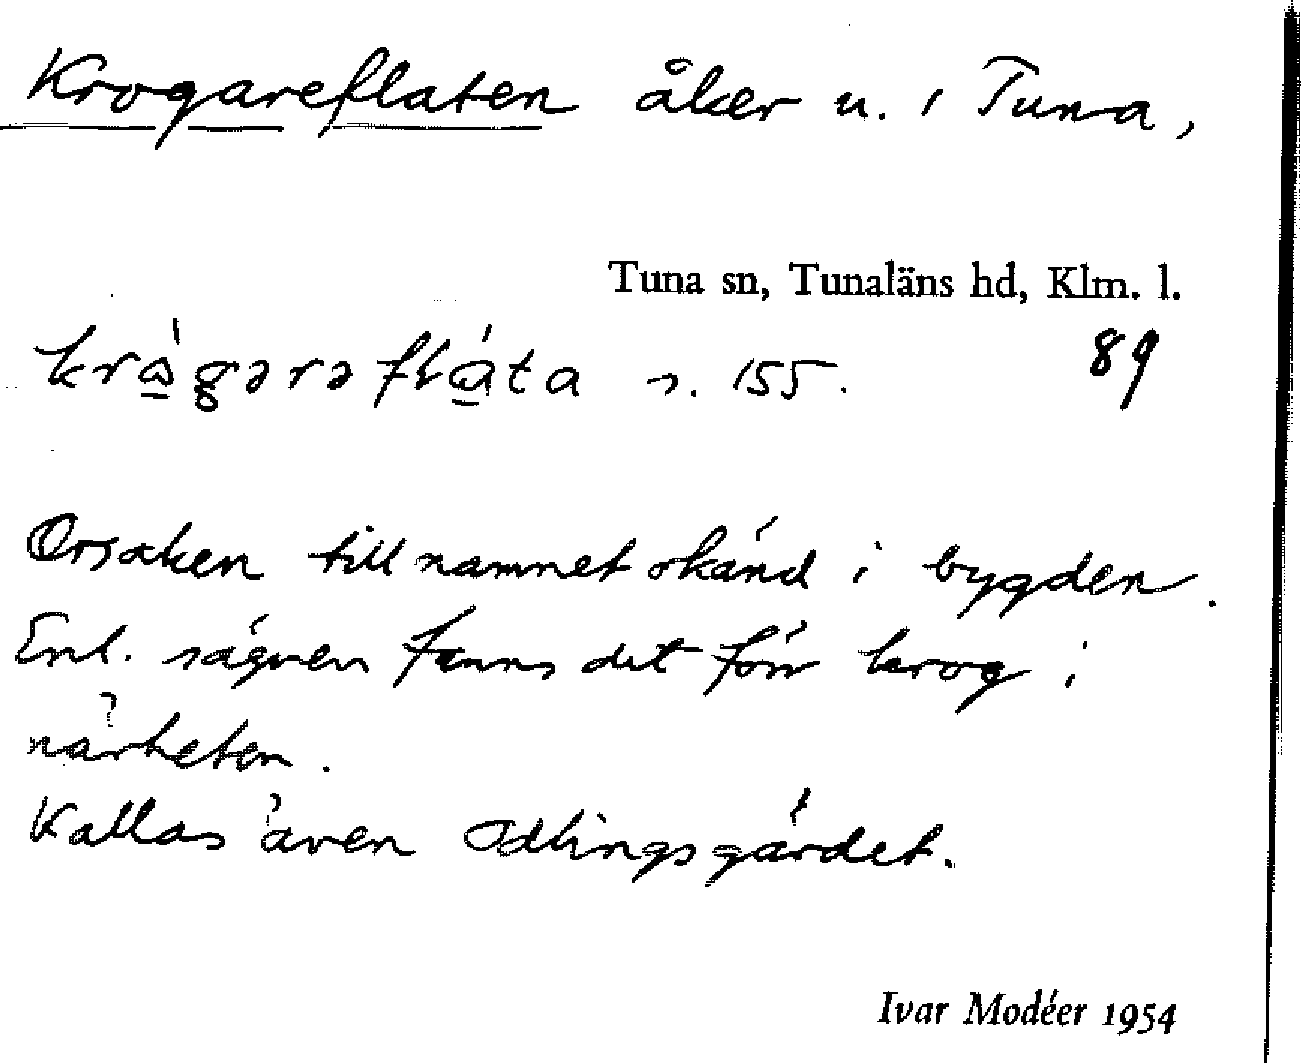 Krogareflaten åker u. i Tuna,
Tuna sn, Tunaläns hd, Klm. l.
89
s. 155.
Orsaken till namnet okänd i bygden.
Enl. sägnen fanns det förr krog i
närheten.
Kallas även Odlingsgärdet.
Ivar Modéer 1954